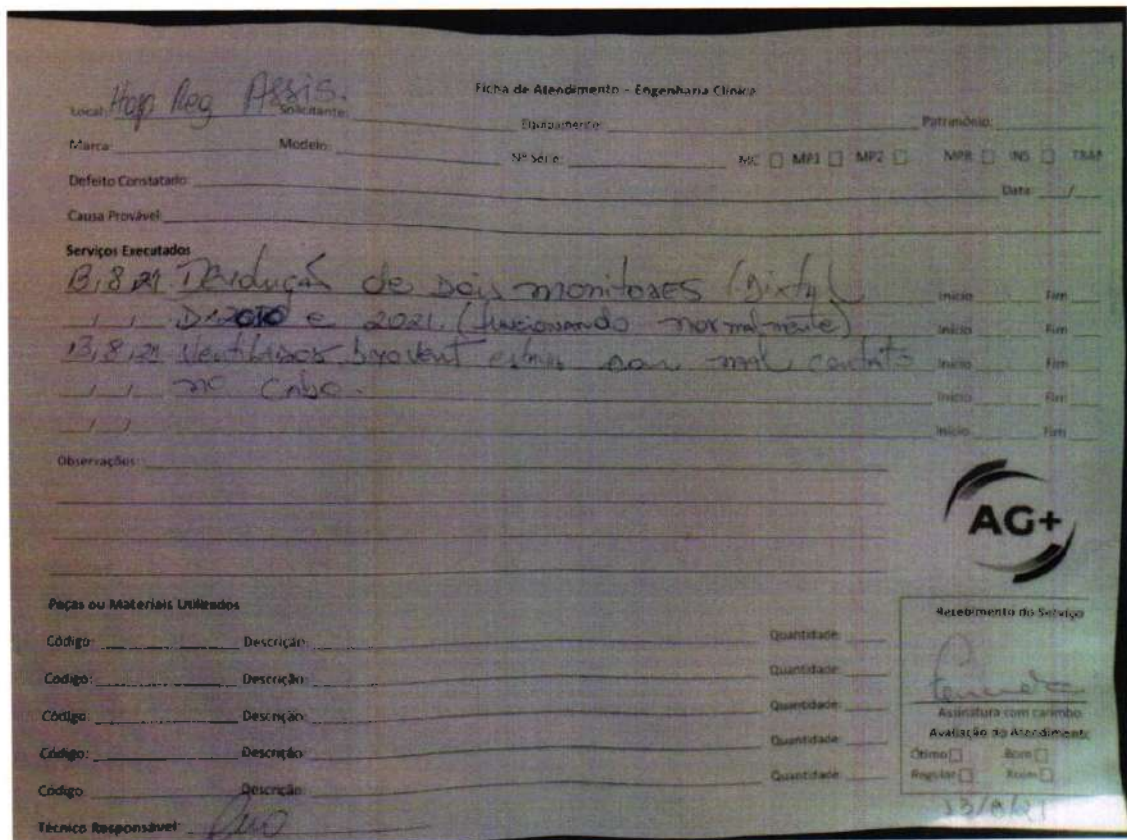 Ficha de Atendimento - Engenharia Clínica
Local: Hosp Reg Assis. Solicitante: Equipamento: Patrimônio:
Marca: Modelo: Nº Série: MC MP1 MP2 MPR INS TRAN
Defeito Constatado: Data: /
Causa Provável:
Serviços Executados
13/8/21 Devolução de Dois monitores (Dixtal Início Fim
/ / DX2010 e 2021. (funcionando normalmente) Início Fim
13/8/21 mal contato Início Fim
/ / no Cabo. Início Fim
/ / Início Fim
Observações:
AG+
Peças ou Materiais Utilizados
Recebimento do Serviço
Código: Descrição: Quantidade:
Código: Descrição: Quantidade:
Código: Descrição: Quantidade:
Código: Descrição: Quantidade:
Código: Descrição: Quantidade:
Assinatura com carimbo
Avaliação do Atendimento
Ótimo Bom
Regular Ruim
13/8/21
Técnico Responsável: